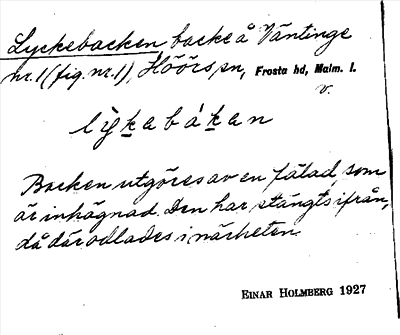 Lyckebacken, backe å Väntinge
nr. 1 (fig. nr. 1), Höörs sn, Frosta hd, Malm. l.
v.
lỳkabákan
Backen utgöres av en fälad, som
är inhägnad. Den har stängts ifrån,
då där odlades i närheten.
EINAR HOLMBERG 1927